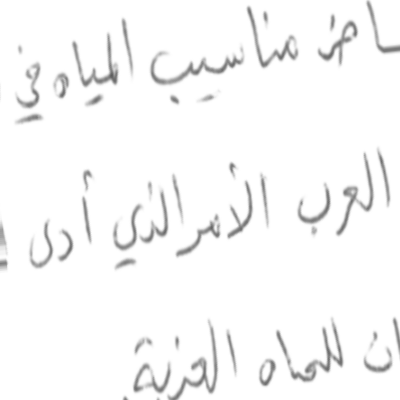 ـاض مناسيب المياه في
العرب الأمر الذي أدى
ان للمياه العذبة